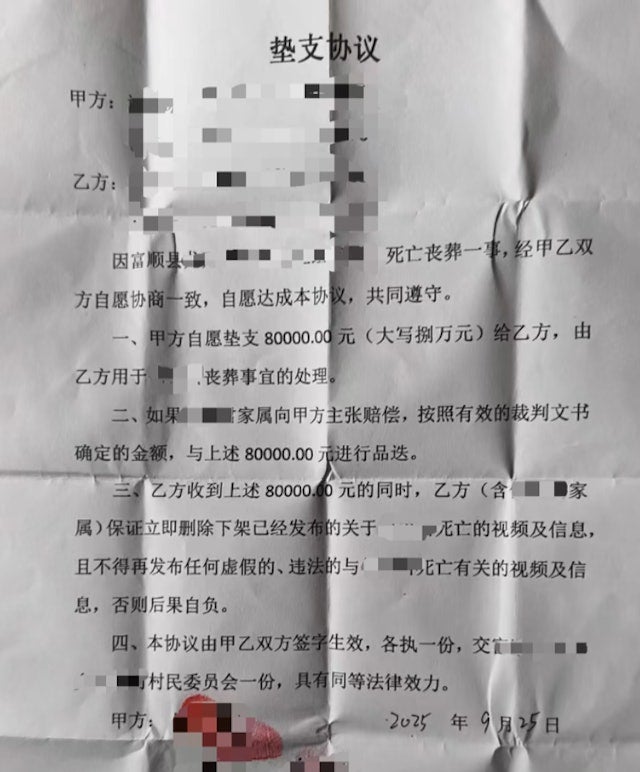 垫支协议
甲方：
乙方：
因富顺县 死亡丧葬一事，经甲乙双
方自愿协商一致，自愿达成本协议，共同遵守。
一、甲方自愿垫支 80000.00 元（大写捌万元）给乙方，由
乙方用于 丧葬事宜的处理。
二、如果 家属向甲方主张赔偿，按照有效的裁判文书
确定的金额，与上述 80000.00 元进行品迭。
三、乙方收到上述 80000.00 元的同时，乙方（含 家
属）保证立即删除下架已经发布的关于 死亡的视频及信息，
且不得再发布任何虚假的、违法的与 死亡有关的视频及信
息，否则后果自负。
四、本协议由甲乙双方签字生效，各执一份，交
村民委员会一份，具有同等法律效力。
甲方： 2025 年 9 月 25 日